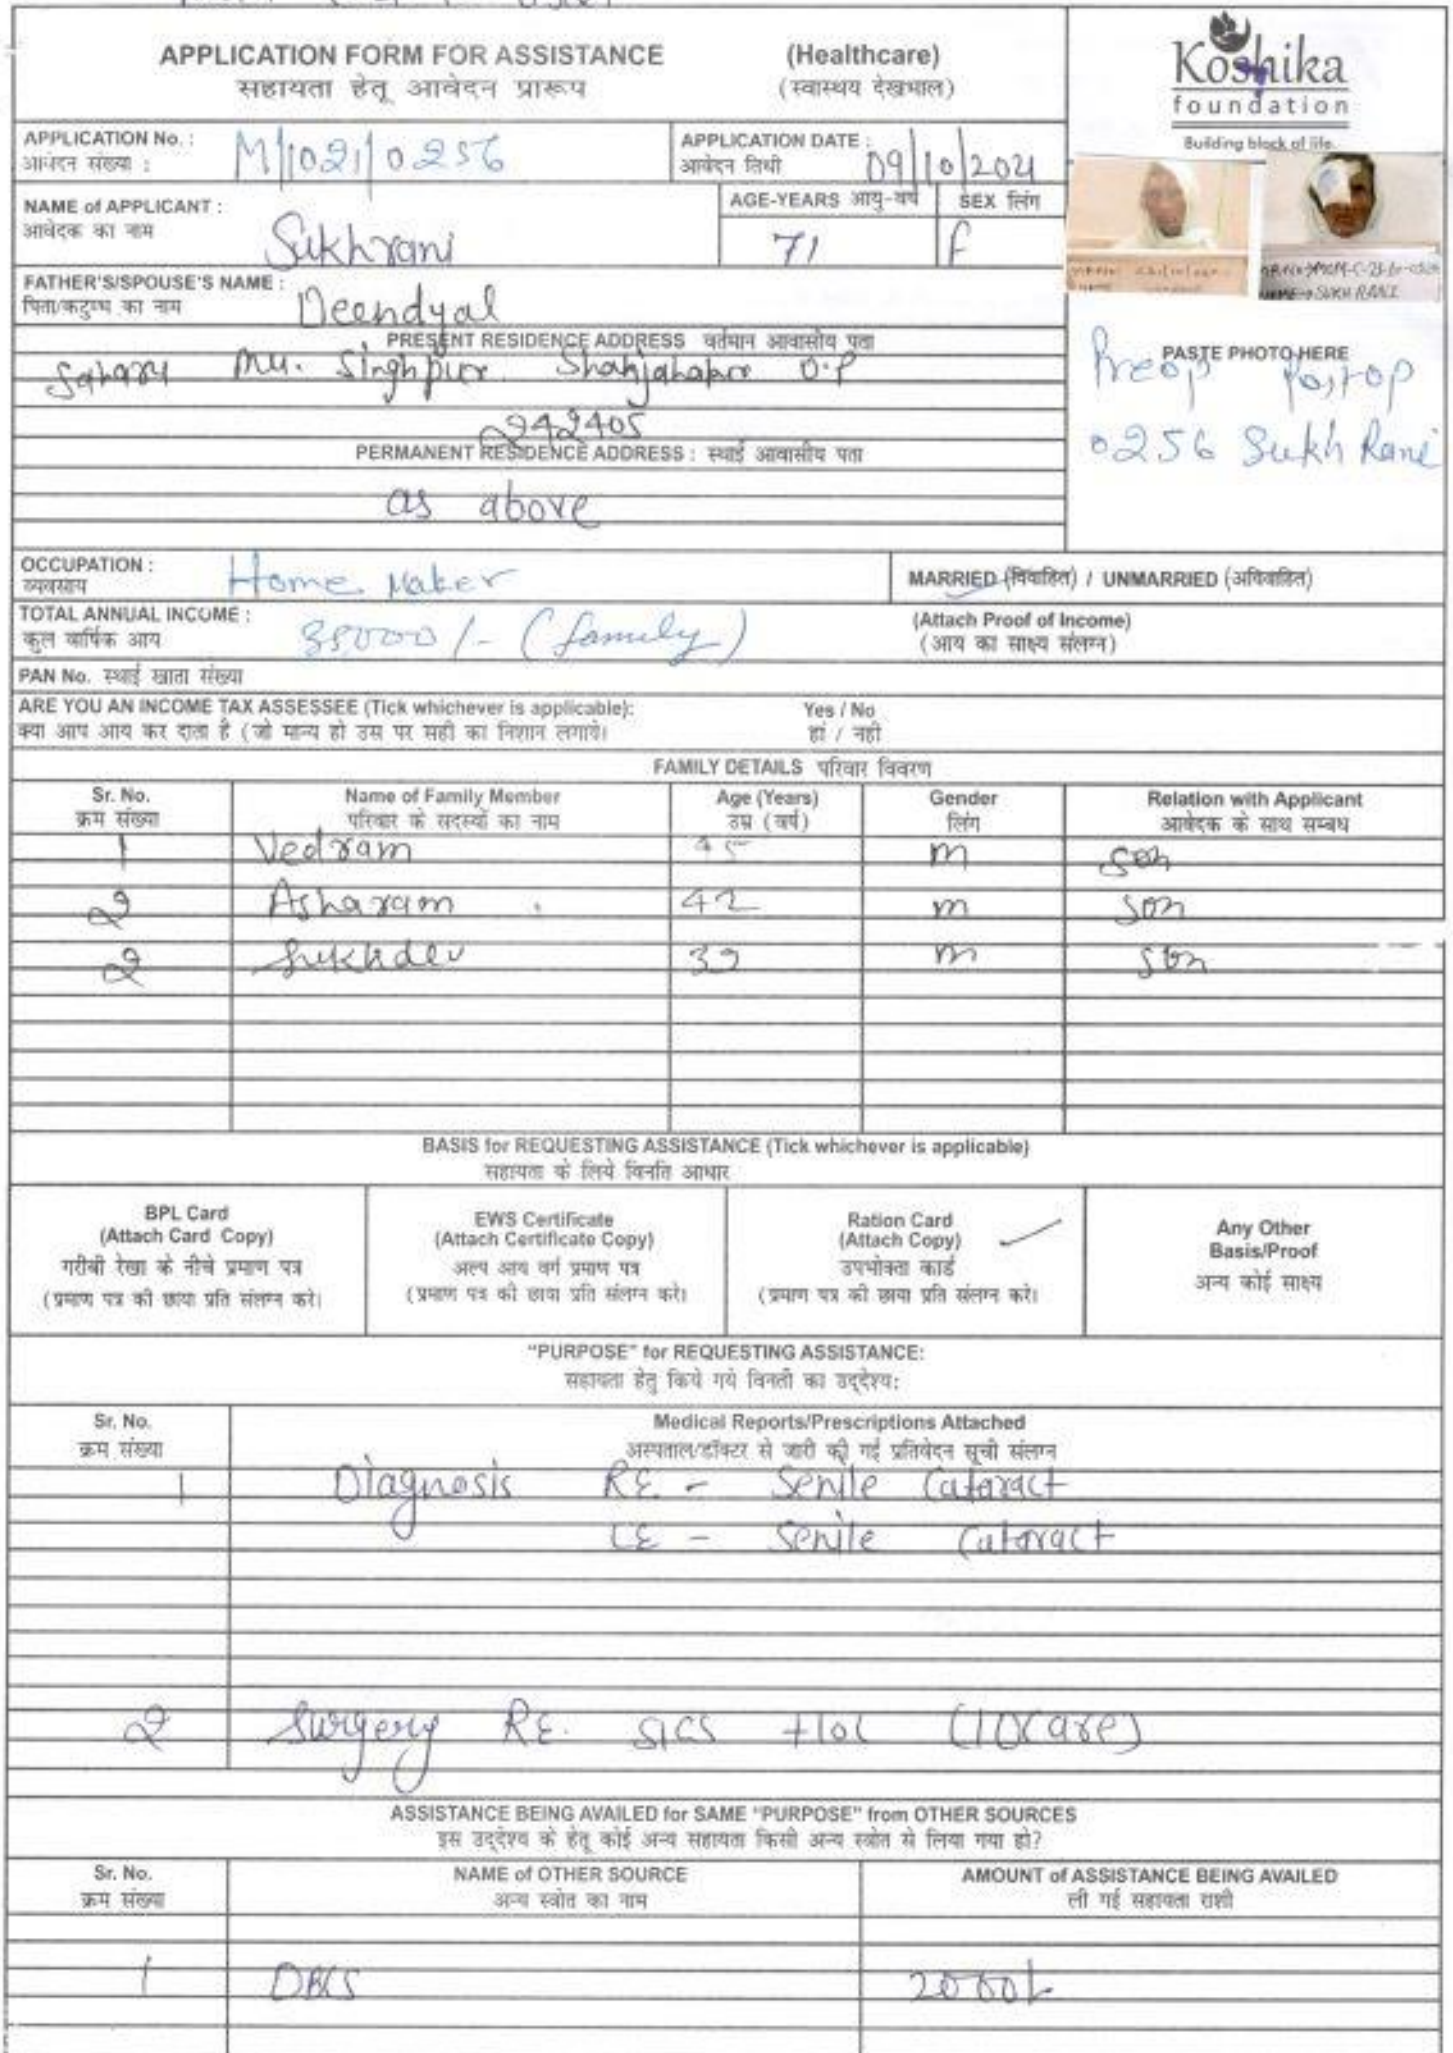 APPLICATION FORM FOR ASSISTANCE (Healthcare)
सहायता हेतू आवेदन प्रारूप (स्वास्थय देखभाल)
Koshika
foundation
Building block of life.
APPLICATION No. :
आवेदन संख्या :
M/1021/0256
APPLICATION DATE :
आवेदन तिथी
09/10/2021
NAME of APPLICANT :
आवेदक का नाम
Sukhrani
AGE-YEARS आयु-वर्ष
71
SEX लिंग
F
NAME → SUKH RANI
FATHER'S/SPOUSE'S NAME :
पिता/कटुम्ब का नाम
Deendyal
PRESENT RESIDENCE ADDRESS वर्तमान आवासीय पता
Mu. Singhpur U.P
242405
PASTE PHOTO HERE
Preop Postop
0256 Sukh Rani
PERMANENT RESIDENCE ADDRESS : स्थाई आवासीय पता
as above
OCCUPATION :
व्यवसाय
Home Maker
MARRIED (विवाहित) / UNMARRIED (अविवाहित)
TOTAL ANNUAL INCOME :
कुल वार्षिक आय
35000/- (family)
(Attach Proof of Income)
(आय का साक्ष्य संलग्न)
PAN No. स्थाई खाता संख्या
ARE YOU AN INCOME TAX ASSESSEE (Tick whichever is applicable): Yes / No
क्या आप आय कर दाता है (जो मान्य हो उस पर सही का निशान लगाये। हां / नही
FAMILY DETAILS परिवार विवरण
Sr. No. Name of Family Member Age (Years) Gender Relation with Applicant
क्रम संख्या परिवार के सदस्यों का नाम उम्र (वर्ष) लिंग आवेदक के साथ सम्बध
1 Vedram 45 m son
2 Asharam 42 m son
2 Sukhdev 39 m son
BASIS for REQUESTING ASSISTANCE (Tick whichever is applicable)
सहायता के लिये विनति आधार
BPL Card
(Attach Card Copy)
गरीबी रेखा के नीचे प्रमाण पत्र
(प्रमाण पत्र की छाया प्रति संलग्न करे।
EWS Certificate
(Attach Certificate Copy)
अल्प आय वर्ग प्रमाण पत्र
(प्रमाण पत्र की छाया प्रति संलग्न करे।
Ration Card
(Attach Copy)
उपभोक्ता कार्ड
(प्रमाण पत्र की छाया प्रति संलग्न करे।
Any Other
Basis/Proof
अन्य कोई साक्ष्य
"PURPOSE" for REQUESTING ASSISTANCE:
सहायता हेतु किये गये विनती का उद्देश्य:
Sr. No. Medical Reports/Prescriptions Attached
क्रम संख्या अस्पताल/डॉक्टर से जारी की गई प्रतिवेदन सूची संलग्न
1 Diagnosis RE - Senile Cataract
LE - Senile Cataract
2 Surgery RE. SICS
ASSISTANCE BEING AVAILED for SAME "PURPOSE" from OTHER SOURCES
इस उद्देश्य के हेतू कोई अन्य सहायता किसी अन्य स्त्रोत से लिया गया हो?
Sr. No. NAME of OTHER SOURCE AMOUNT of ASSISTANCE BEING AVAILED
क्रम संख्या अन्य स्त्रोत का नाम ली गई सहायता राशी
1 DBCS 2000/-